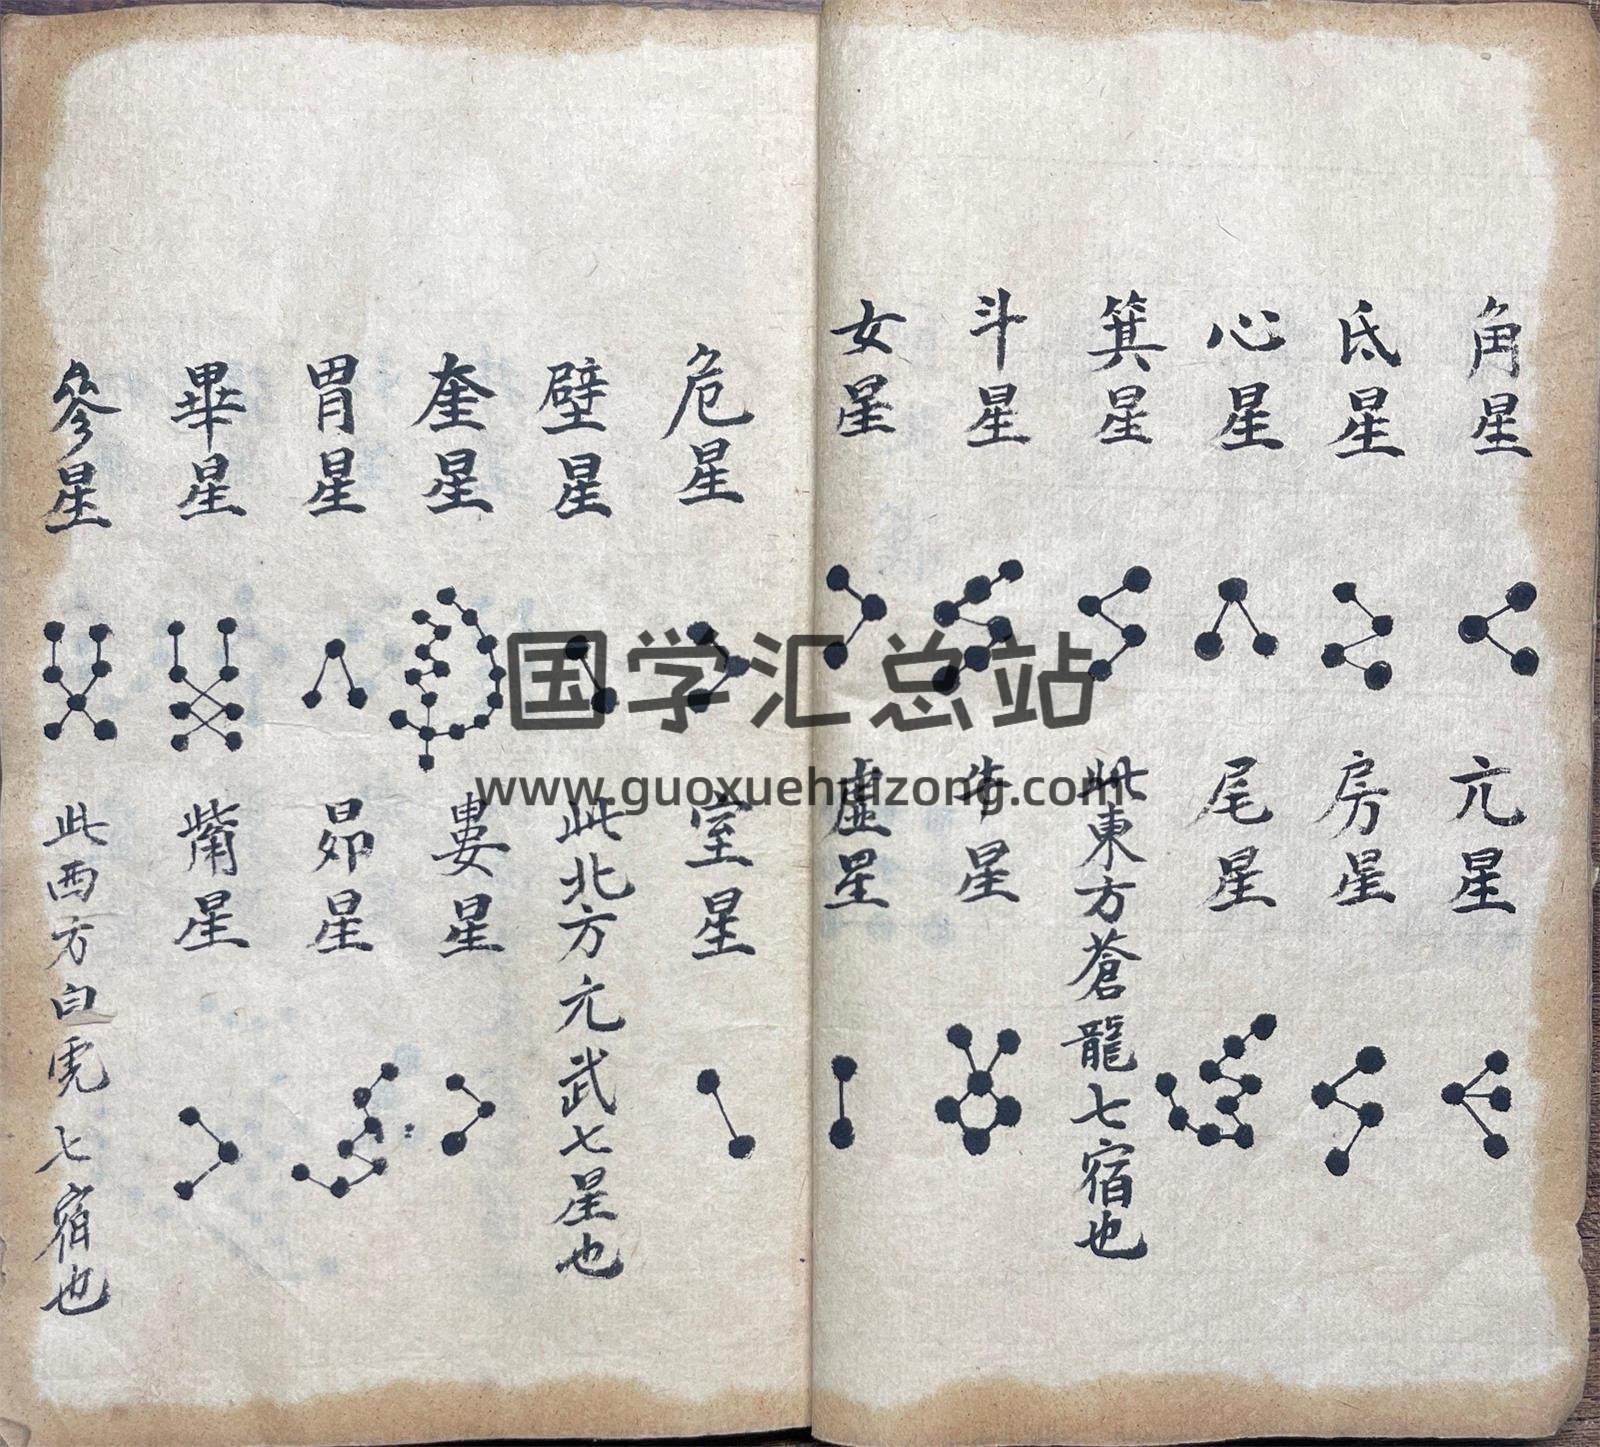 角星
亢星
氐星
房星
心星
尾星
箕星
此東方蒼龍七宿也
斗星
牛星
女星
虛星
危星
室星
壁星
此北方元武七星也
奎星
婁星
胃星
昴星
畢星
觜星
參星
此西方白虎七宿也
国学汇总站
www.guoxuehuizong.com